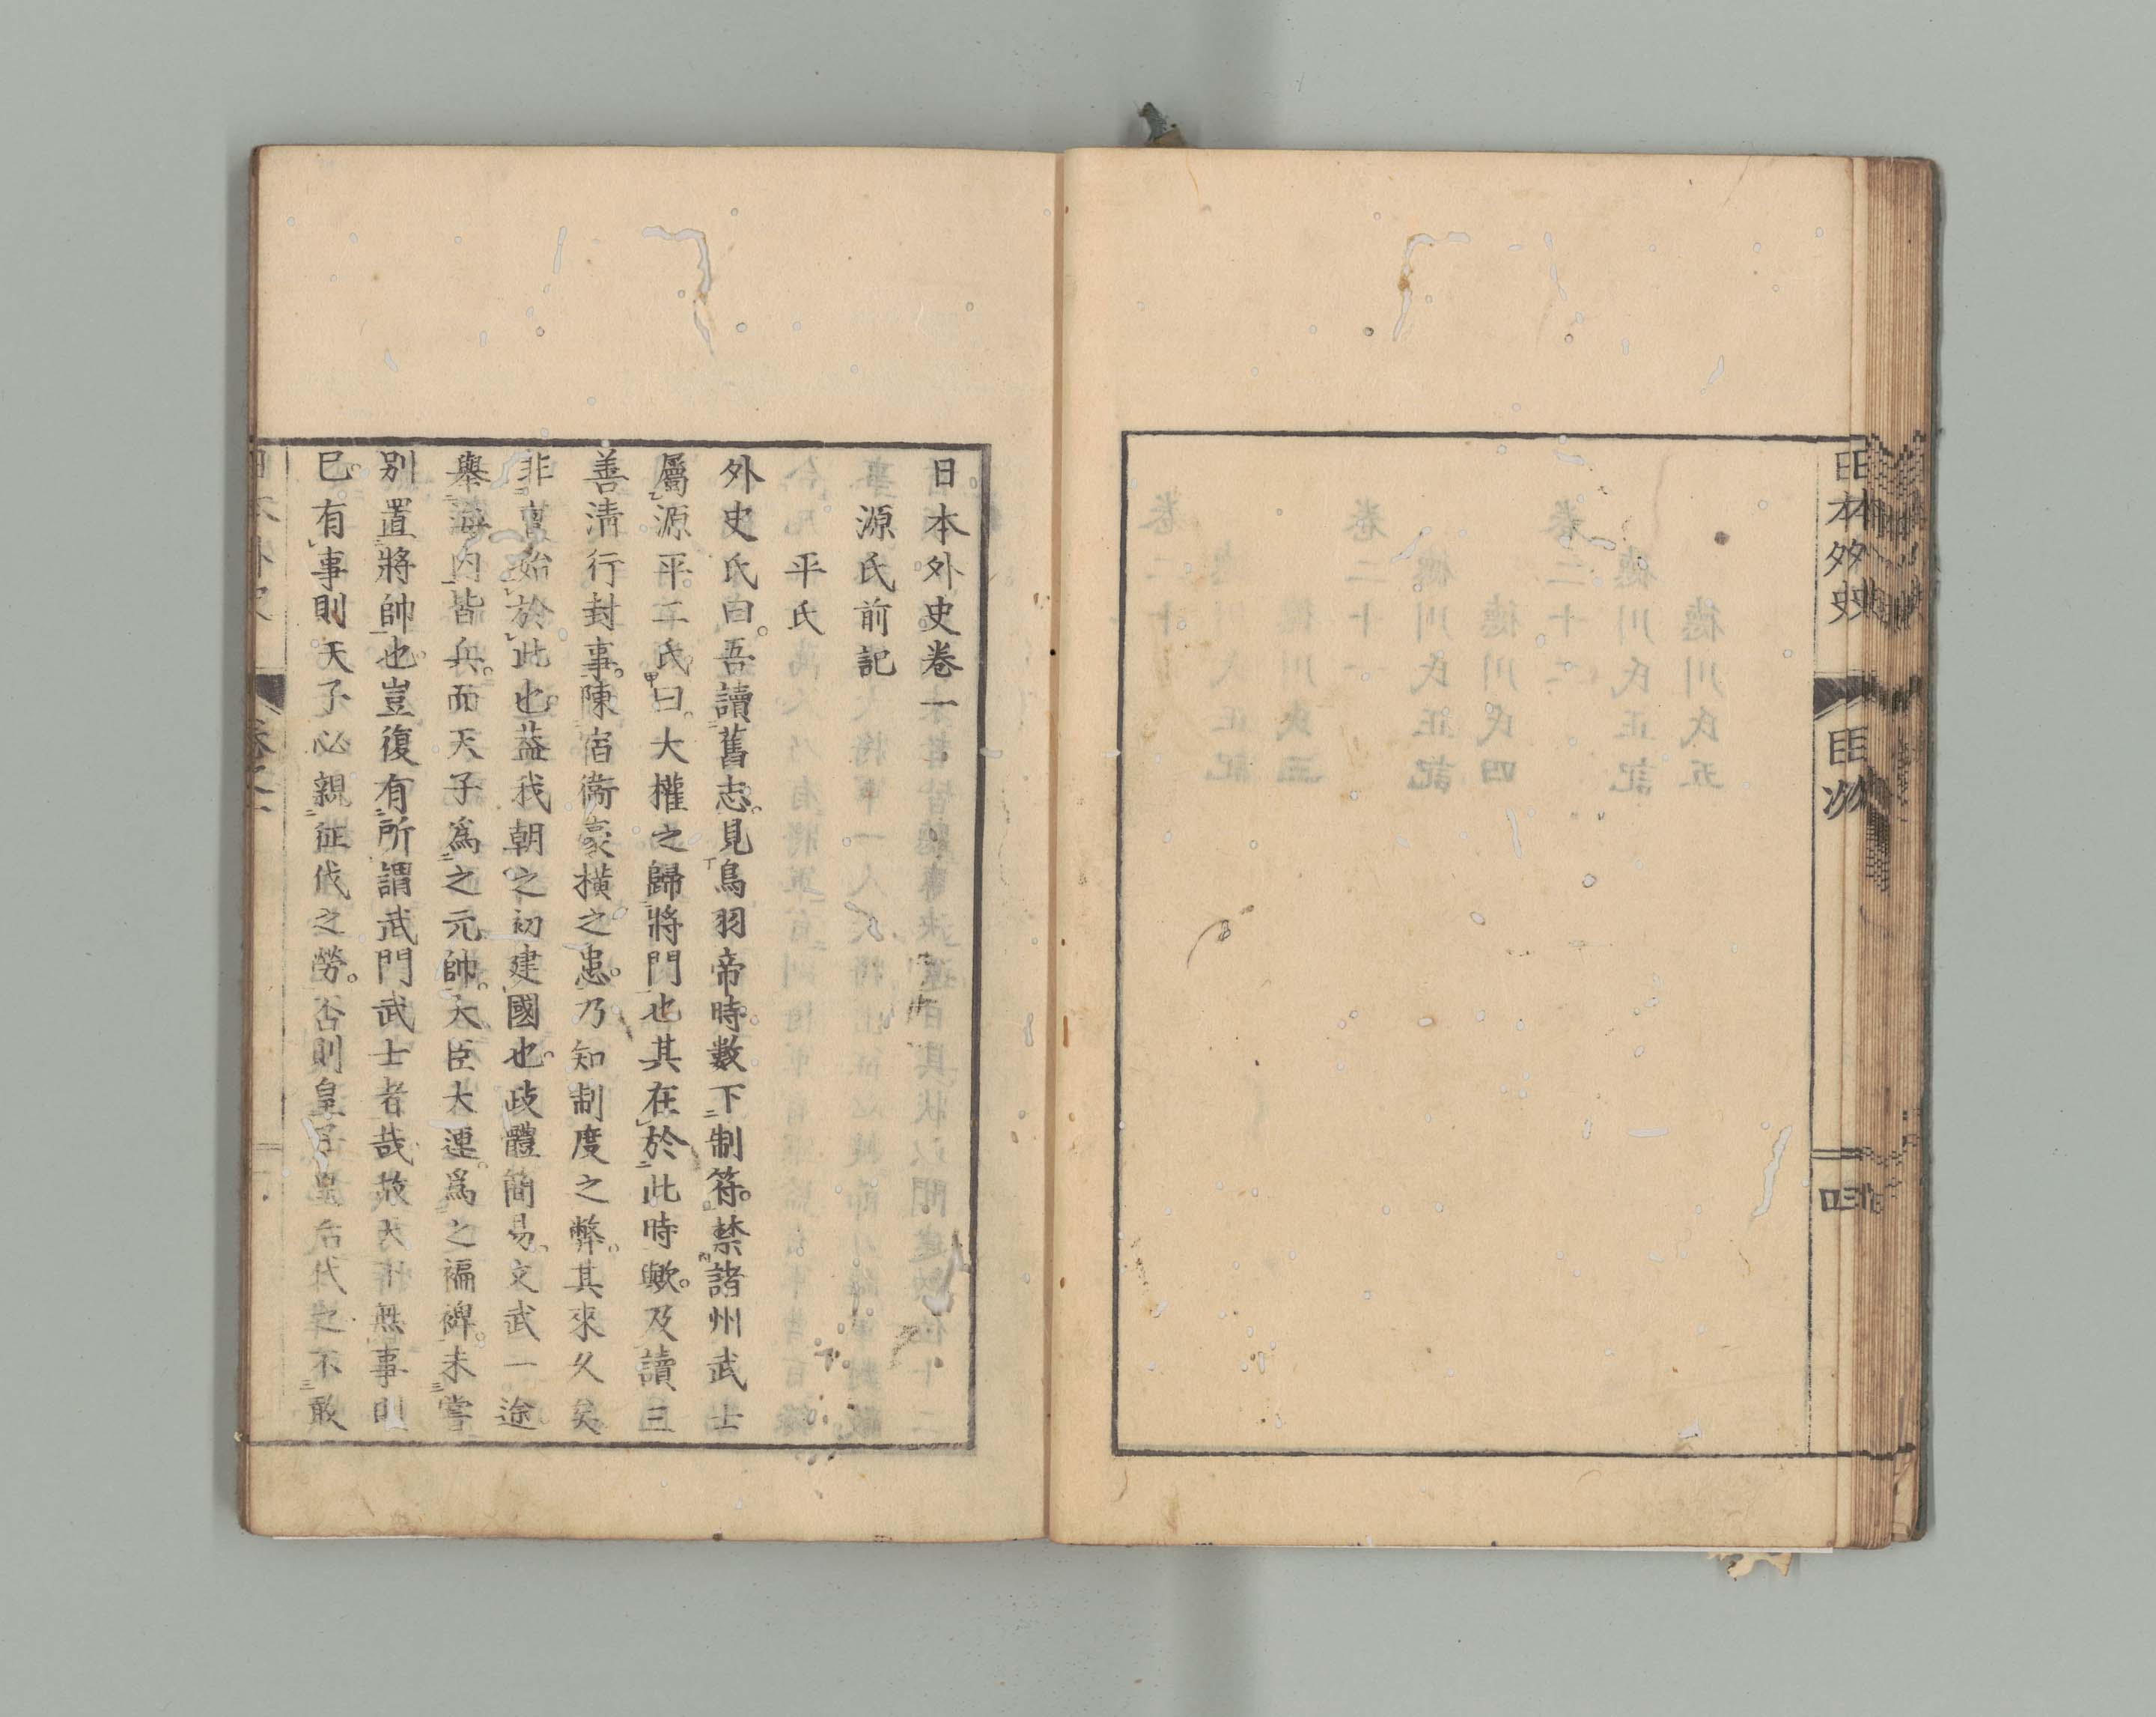 日本外史
目次
日本外史卷一
源氏前記
平氏
外史氏曰。吾讀舊志。見鳥羽帝時。數下制符。禁諸州武士
屬源平二氏。曰。大權之歸將門也其在於此時歟。及讀三
善清行封事。陳宿衞豪横之患。乃知制度之弊。其來久矣
非始於此也。蓋我朝之初建國也。政體簡易。文武一途
舉海内皆兵。而天子爲之元帥。大臣大連爲之褊裨。未嘗
別置將帥也。豈復有所謂武門武士者哉故天下無事則
已。有事則天子必親征伐之勞。否則皇子皇后代之不敢